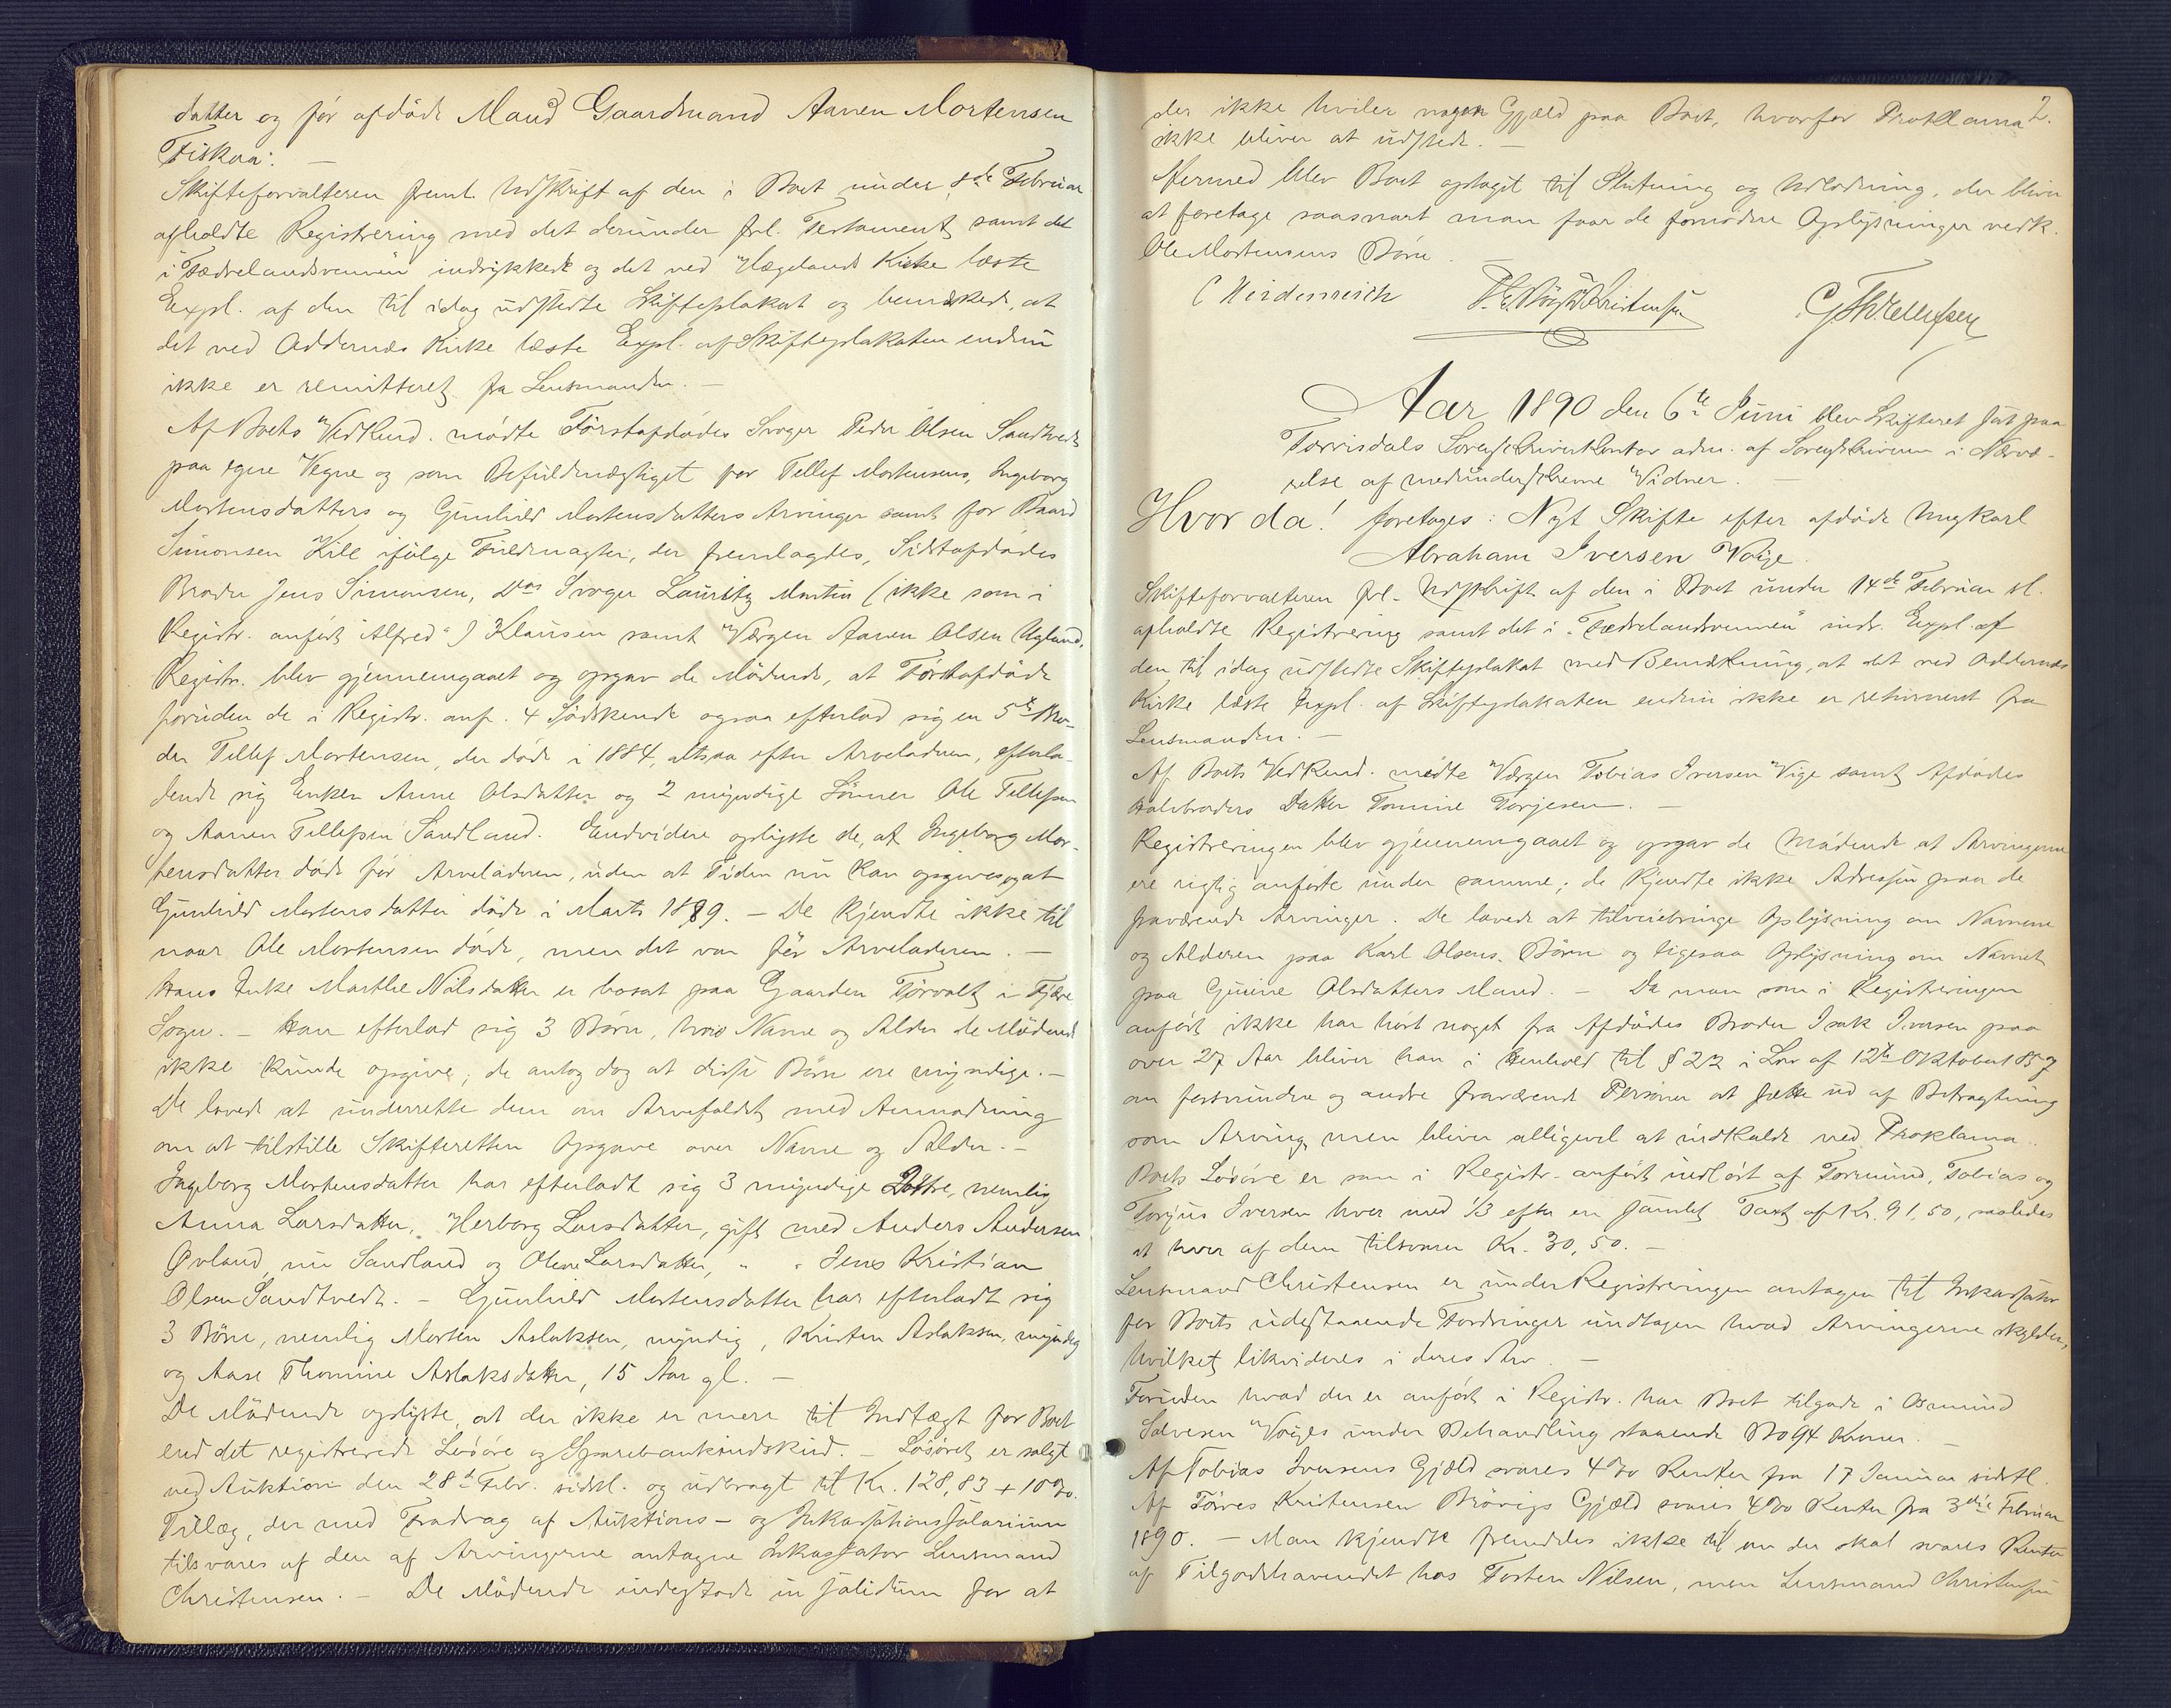 datter og før afdøde Mand Gaardmand Aanen Mortensen
Fiskaa. —
Skifteforvalteren freml. Udskrift af den i Boet under 8de Februar
afholdte Registrering med det derunder frl. Testament, samt det
i "Fædrelandsvennen" indrykkede og det ved Hægelands Kirke læste
Expl. af den til idag udstedte Skifteplakat og bemærkede, at
det ved Oddernæs Kirke læste Expl. af Skifteplakaten endnu
ikke er remitteret fra Lensmanden. —
Af Boets Vedkend. mødte Førstafdødes Svoger Peder Olsen Sandtvedt
paa egne Vegne og som Befuldmægtiget for Tellef Mortensens, Ingeborg
Mortensdatters og Gunhild Mortensdatters Arvinger samt for Baard
Simonsen Kile ifølge Fuldmagter, der fremlagdes, Sidstafdødes
Broder Jens Simonsen, Dos Svoger Lauritz Martin (ikke som i
Registr. anført "Alfred") Klausen samt Værgen Aanen Olsen Ugland.
Registr. blev gjennemgaaet og opgav de Mødende, at Førstafdøde
foruden de i Registr. anf. 4 Sødskende ogsaa efterlod sig en 5te Bro-
der Tellef Mortensen, der døde i 1884, altsaa efter Arveladeren, efterla-
dende sig Enken Anne Olsdatter og 2 myndige Sønner Ole Tellefsen
og Aanen Tellefsen Sandland. Endvidere oplyste de, at Ingeborg Mor-
tensdatter døde før Arveladeren, uden at Tiden nu kan opgives, og at
Gunhild Mortensdatter døde i Marts 1889. — De kjendte ikke til
naar Ole Mortensen døde, men det var før Arveladeren. —
Hans Enke Marthe Nilsdatter er bosat paa Gaarden Tørvolt i Fjære
Sogn. — Han efterlod sig 3 Børn, hvis Navne og Alder de Mødende
ikke kunde opgive; de antog dog at disse Børn ere myndige. —
De lovede at underrette dem om Arvefaldet med Anmodning
om at tilstille Skifteretten Opgave over Navne og Alder. —
Ingeborg Mortensdatter har efterladt sig 3 myndige Døttre, nemlig
Anna Larsdatter, Herborg Larsdatter, gift med Anders Andersen
Øvland, nu Sandland og Olene Larsdatter, " " Jens Kristian
Olsen Sandtvedt. — Gunhild Mortensdatter har efterladt sig
3 Børn, nemlig Morten Aslaksen, myndig, Kristen Aslaksen, myndig
og Aase Thomine Aslaksdatter, 15 Aar gl. —
De Mødende oplyste, at der ikke er mere til Indtægt for Boet
end det registrerede Løsøre og Sparebankindskud. — Løsøret er solgt
ved Auktion den 28de Febr. sidstl. og udbragt til Kr. 128,83 + 10%
Tillæg, der med Fradrag af Auktions- og Inkassationssalarium
tilsvares af den af Arvingerne antagne Inkassator Lensmand
Christensen. — De Mødende indestode in solidum for at
2.
der ikke hviler nogen Gjæld paa Boet, hvorfor Proklama
ikke bliver at udstede. —
Hermed blev Boet optaget til Slutning og Udlodning, der bliver
at foretage saasnart man faar de fornødne Oplysninger vedk.
Ole Mortensens Børn. —
C Heidenreich Kristensen G Th Tellefsen
Aar 1890 den 6te Juni blev Skifteret sat paa
Torrisdals Sorenskriverkontor adm. af Sorenskriveren i Nærvæ-
relse af medunderskrevne Vidner. —
Hvor da! foretoges: Nyt Skifte efter afdøde Ungkarl
Abraham Iversen Voige.
Skifteforvalteren frl. Udskrift af den i Boet under 14de Februar sl.
afholdte Registrering samt det i "Fædrelandsvennen" indr. Expl. af
den til idag udstedte Skifteplakat med Bemærkning, at det ved Oddernæs
Kirke læste Expl. af Skifteplakaten endnu ikke er returneret fra
Lensmanden. —
Af Boets Vedkend. mødte Værgen Tobias Iversen Vige samt Afdødes
Halvbroders Datter Tomine Torjesen. —
Registreringen blev gjennemgaaet og opgav de Mødende at Arvingerne
ere rigtig anførte under samme; de kjendte ikke Adressen paa de
fraværende Arvinger. De lovede at tilveiebringe Oplysning om Navnene
og Alderen paa Karl Olsens Børn og ligesaa Oplysning om Navnet
paa Gunine Olsdatters Mand. — Da man som i Registreringen
anført ikke har hørt noget fra Afdødes Broder Isak Iversen paa
over 27 Aar bliver han i Henhold til § 22 i Lov af 12te Oktober 1857
om forsvundne og andre fraværende Personer at sætte ud af Betragtning
som Arving, men bliver alligevel at indkalde ved Proklama.
Boets Løsøre er som i Registr. anført indløst af Tormund, Tobias og
Torjus Iversen hver med 1/3 efter en samlet Taxt af Kr. 91,50, saaledes
at hver af dem tilsvarer Kr. 30,50. —
Lensmand Christensen er under Registreringen antagen til Inkassator
for Boets udestaaende Fordringer undtagen hvad Arvingerne skylder,
hvilket likvideres i deres Arv. —
Foruden hvad der er anført i Registr. har Boet tilgode i Osmund
Salvesen Voiges under Behandling staaende Bo 94 Kroner. —
Af Tobias Iversens Gjæld svares 4% Renter fra 17 Januar sidstl.
Af Tørres Kristensen Brøvigs Gjæld svares 4% Renter fra 3die Februar
1890. — Man kjendte fremdeles ikke til om der skal svares Renter
af Tilgodehavendet hos Torsten Nilsen, men Lensmand Christensen